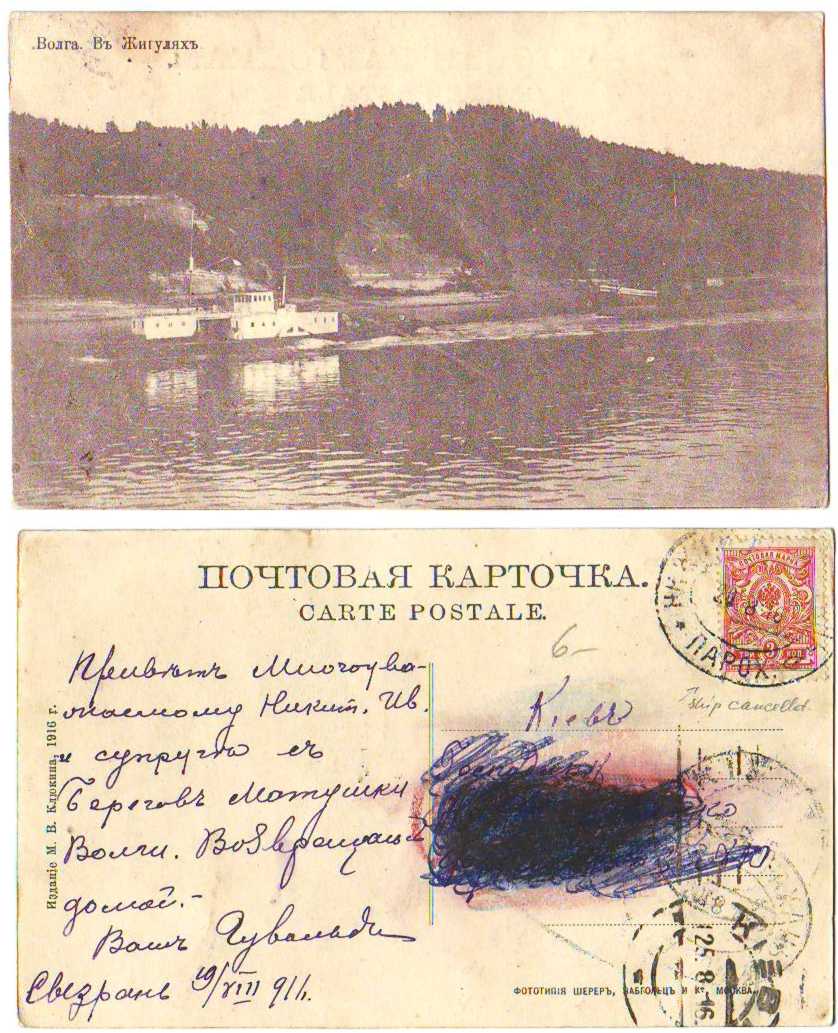 Волга. Въ Жигуляхъ
ПОЧТОВАЯ КАРТОЧКА.
CARTE POSTALE.
ПАРОХ.
ПОЧТОВАЯ МАРКА
ТРИ 3 КОП
6-
ship cancelled
Привѣтъ Многоува-
жаемому Никит. Ив.
и супругѣ съ
береговъ Матушки
Волги. Возвращаюсь
домой.-
Вашъ
Сызрань 19/VIII 916.
Кіевъ
Изданіе М. В. Клюкина, 1916 г.
25.8.16
ФОТОТИПІЯ ШЕРЕРЪ, НАБГОЛЬЦЪ И Кº, МОСКВА.